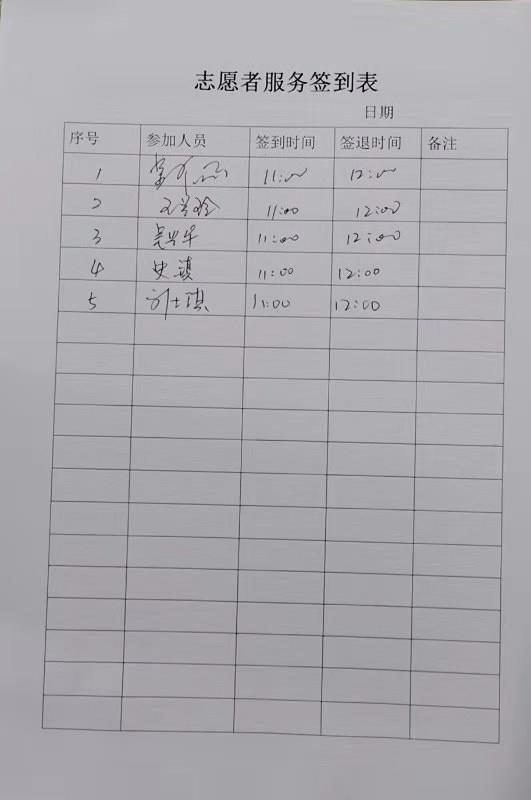 志愿者服务签到表
日期
序号 参加人员 签到时间 签退时间 备注
1 11:00 12:00
2 11:00 12:00
3 吴兴华 11:00 12:00
4 史镇 11:00 12:00
5 刘士琪 11:00 12:00